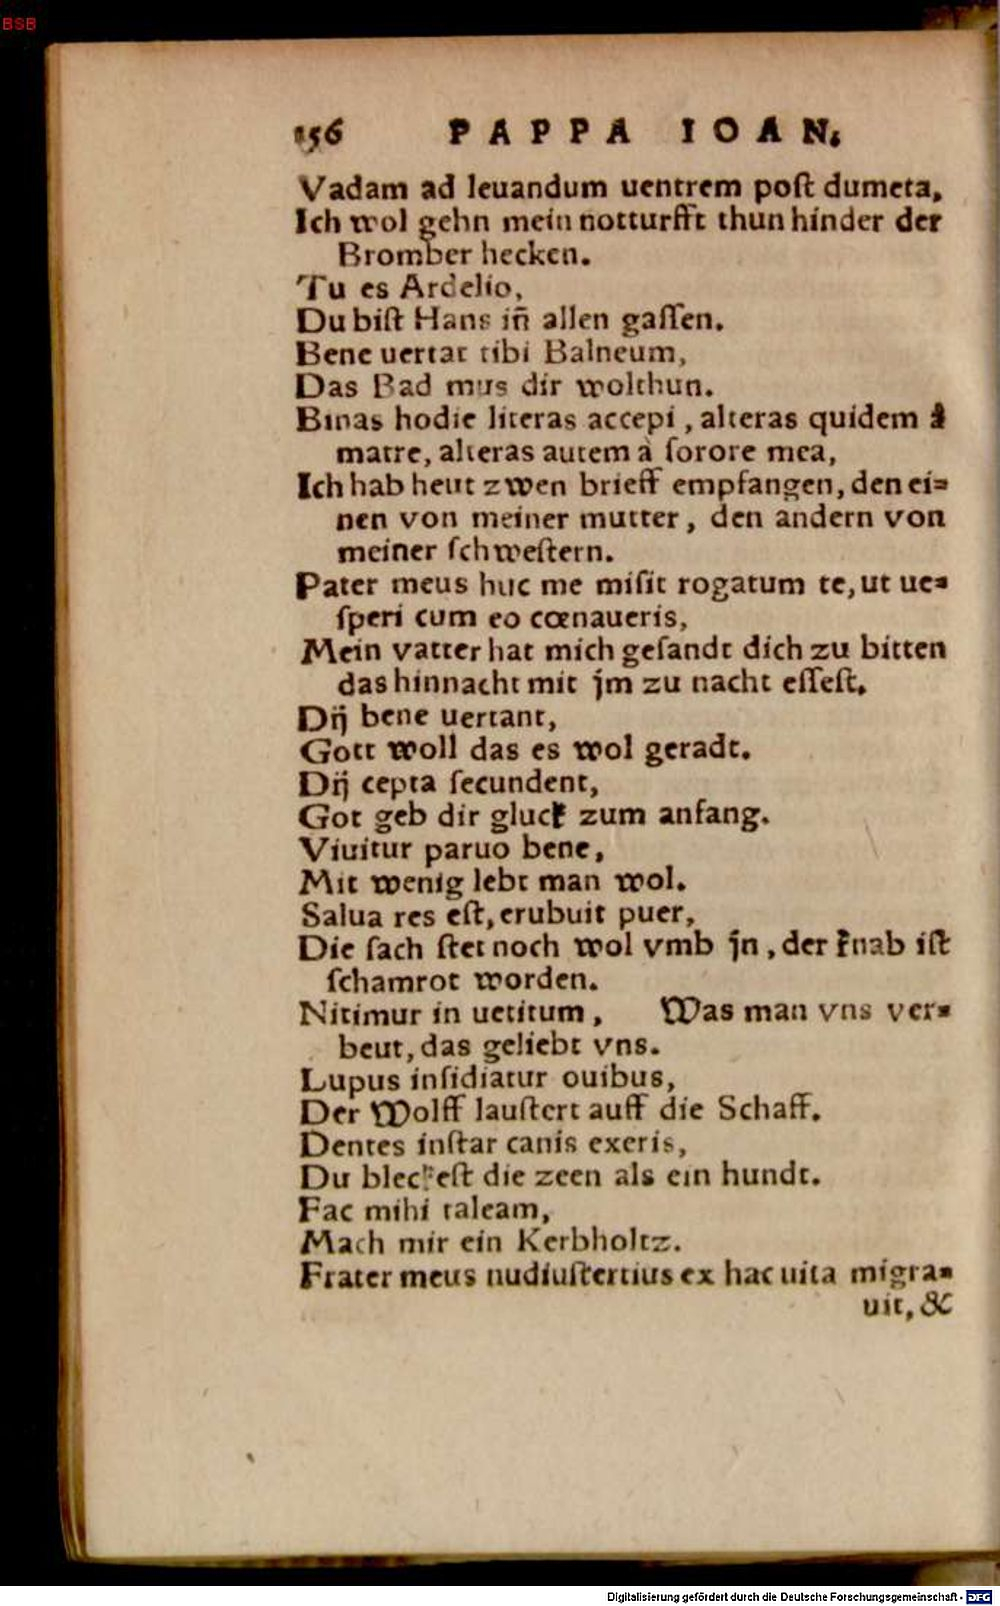 BSB
156 PAPPA IOAN.
Vadam ad leuandum uentrem poſt dumeta,
Ich wol gehn mein notturfft thun hinder der
Bromber hecken.
Tu es Ardelio,
Du biſt Hans iñ allen gaſſen.
Bene uertat tibi Balneum,
Das Bad mus dir wolthun.
Binas hodie literas accepi, alteras quidem à
matre, alteras autem à ſorore mea,
Ich hab heut zwen brieff empfangen, den ei⸗
nen von meiner mutter, den andern von
meiner ſchweſtern.
Pater meus huc me miſit rogatum te, ut ue⸗
ſperi cum eo cœnaueris,
Mein vatter hat mich geſandt dich zu bitten
das hinnacht mit jm zu nacht eſſeſt.
Dij bene uertant,
Gott woll das es wol geradt.
Dij cepta ſecundent,
Got geb dir gluck zum anfang.
Viuitur paruo bene,
Mit wenig lebt man wol.
Salua res eſt, erubuit puer,
Die ſach ſtet noch wol vmb jn, der knab iſt
ſchamrot worden.
Nitimur in uetitum, Was man vns ver⸗
beut, das geliebt vns.
Lupus inſidiatur ouibus,
Der Wolff lauſtert auff die Schaff.
Dentes inſtar canis exeris,
Du bleckeſt die zeen als ein hundt.
Fac mihi taleam,
Mach mir ein Kerbholtz.
Frater meus nudiuſtertius ex hac uita migra⸗
uit, &
Digitalisierung gefördert durch die Deutsche Forschungsgemeinschaft - DFG